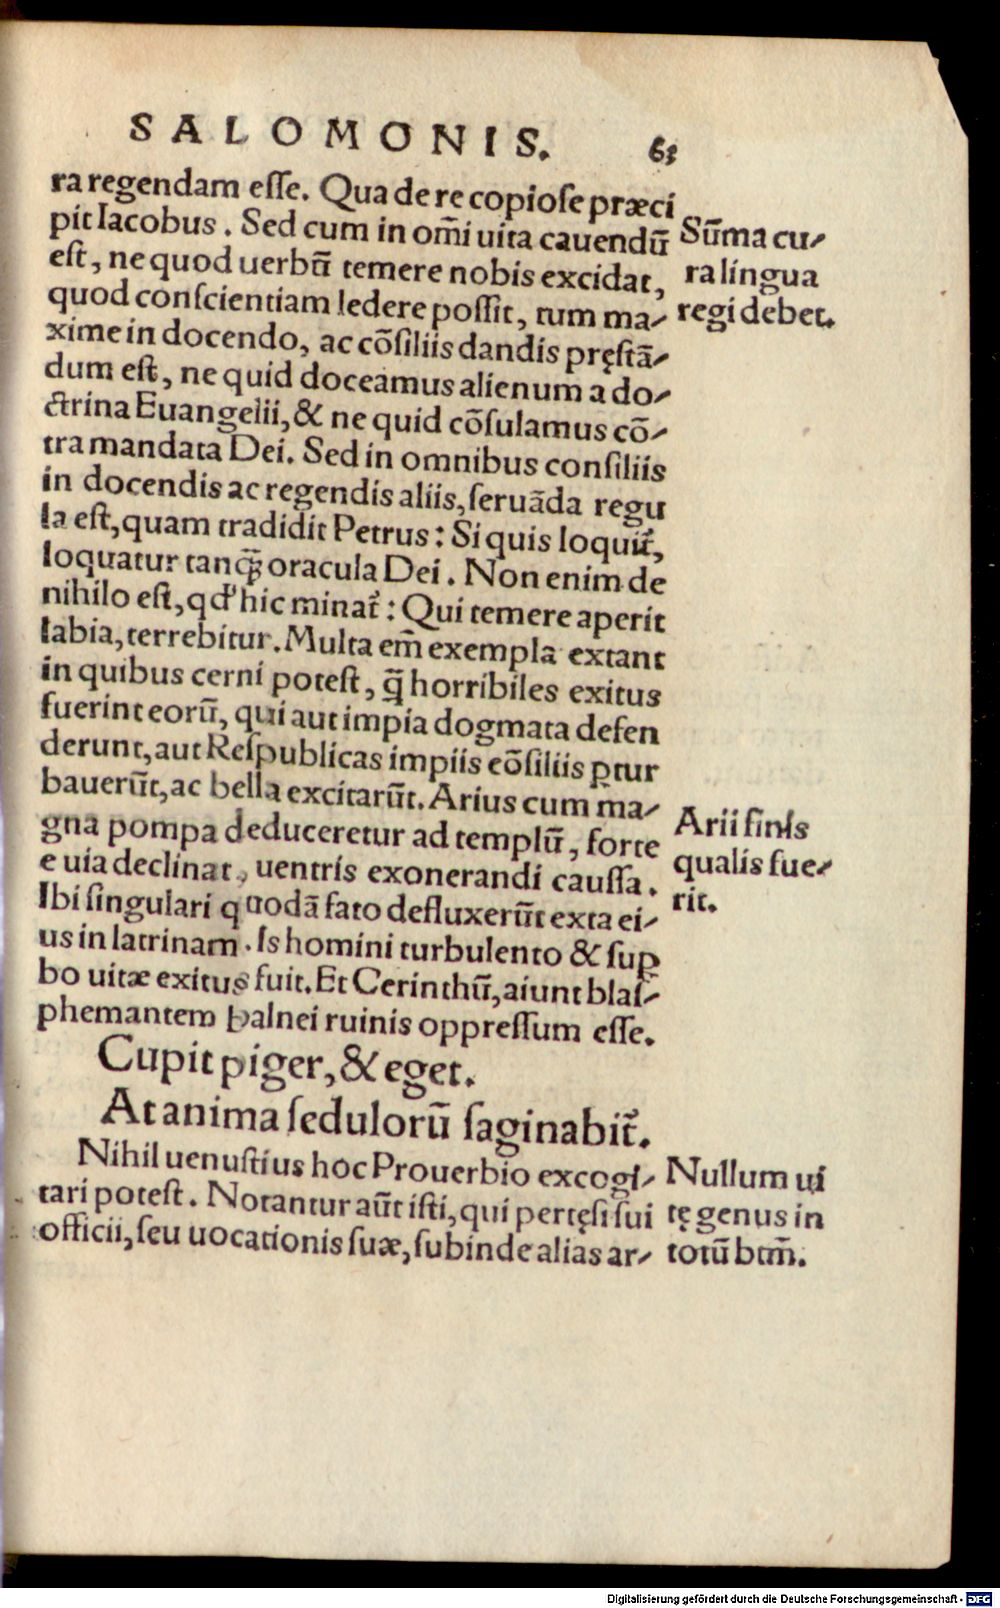 SALOMONIS. 63
ra regendam esse. Qua de re copiose præci
pit Iacobus. Sed cum in om̃i uita cauendũ
est, ne quod uerbũ temere nobis excidat,
quod conscientiam ledere possit, tum ma-
xime in docendo, ac cõsiliis dandis pręstã-
dum est, ne quid doceamus alienum a do-
ctrina Euangelii, & ne quid cõsulamus cõ-
tra mandata Dei. Sed in omnibus consiliis
in docendis ac regendis aliis, seruãda regu
la est, quam tradidit Petrus: Si quis loquit᷑,
loquatur tanq̃ oracula Dei. Non enim de
nihilo est, qd' hic minat᷑: Qui temere aperit
labia, terrebitur. Multa em̃ exempla extant
in quibus cerni potest, q̃ horribiles exitus
fuerint eorũ, qui aut impia dogmata defen
derunt, aut Respublicas impiis cõsiliis ꝑtur
bauerũt, ac bella excitarũt. Arius cum ma-
gna pompa deduceretur ad templũ, forte
e uia declinat, uentris exonerandi caussa.
Ibi singulari quodã fato defluxerũt exta ei-
us in latrinam. Is homini turbulento & suꝑ
bo uitæ exitus fuit. Et Cerinthũ, aiunt blas-
phemantem balnei ruinis oppressum esse.
Cupit piger, & eget.
At anima sedulorũ saginabit᷑.
Nihil uenustius hoc Prouerbio excogi-
tari potest. Notantur aũt isti, qui pertęsi sui
officii, seu uocationis suæ, subinde alias ar-
Sũma cu-
ra lingua
regi debet.
Arii finis
qualis fue-
rit.
Nullum ui
tę genus in
totũ btm̃.
Digitalisierung gefördert durch die Deutsche Forschungsgemeinschaft - DFG